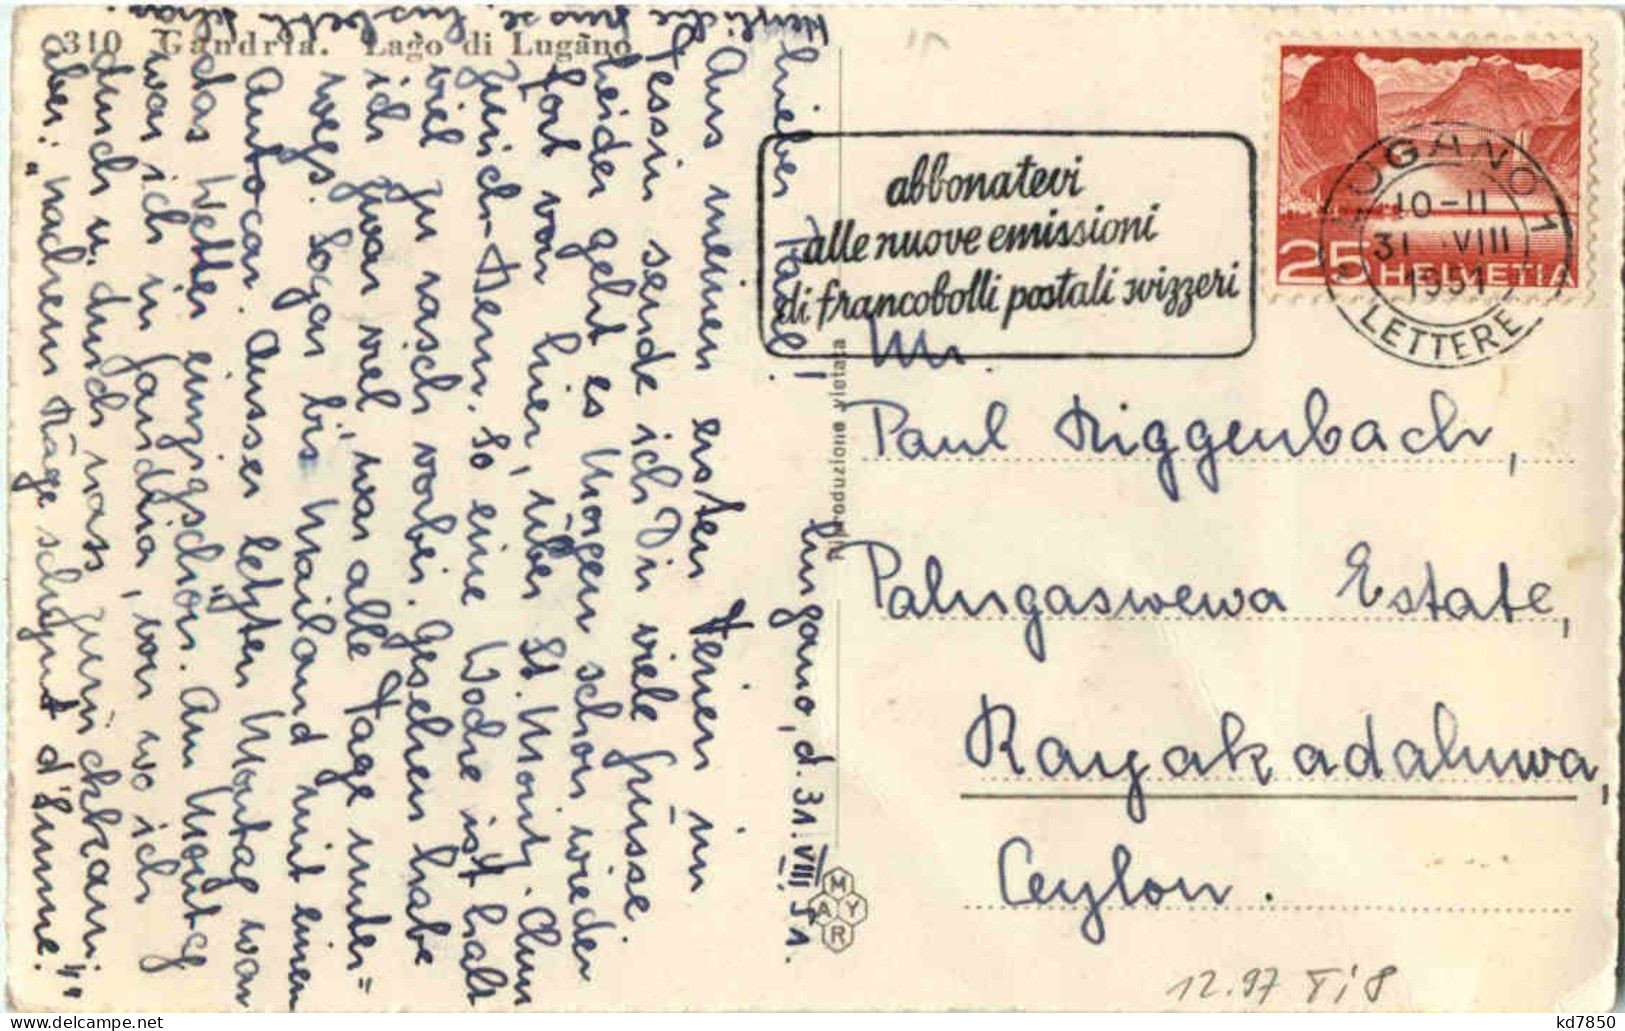 310 Gandria. Lago di Lugano
Lugano, d. 31. VIII 51.
Lieber Paul!
Aus meinen ersten Ferien im
Tessin sende ich Dir viele Grüsse.
Leider geht es Morgen schon wieder
fort von hier, über St. Moritz, Chur
Zürich-Bern. So eine Woche ist halt
viel zu rasch vorbei. Gesehen habe
ich zwar viel, war alle Tage unter=
wegs. Sogar bis Mailand mit einem
Autocar. Ausser letzten Montag war
das Wetter einzigschön. Am Montag
war ich in Gandria, von wo ich
durch u. durch nass zurückkam;
aber: "nachem Räge schiynt d'Sunne."
Herzliche Grüsse.
Riproduzione vietata
MAYR
abbonatevi
alle nuove emissioni
di francobolli postali svizzeri
25 HELVETIA
LUGANO 1
10-11
31. VIII
1951
LETTERE
Mr.
Paul Riggenbach,
Palugaswewa Estate,
Rayakadaluwa,
Ceylon.
12.97
kd7850